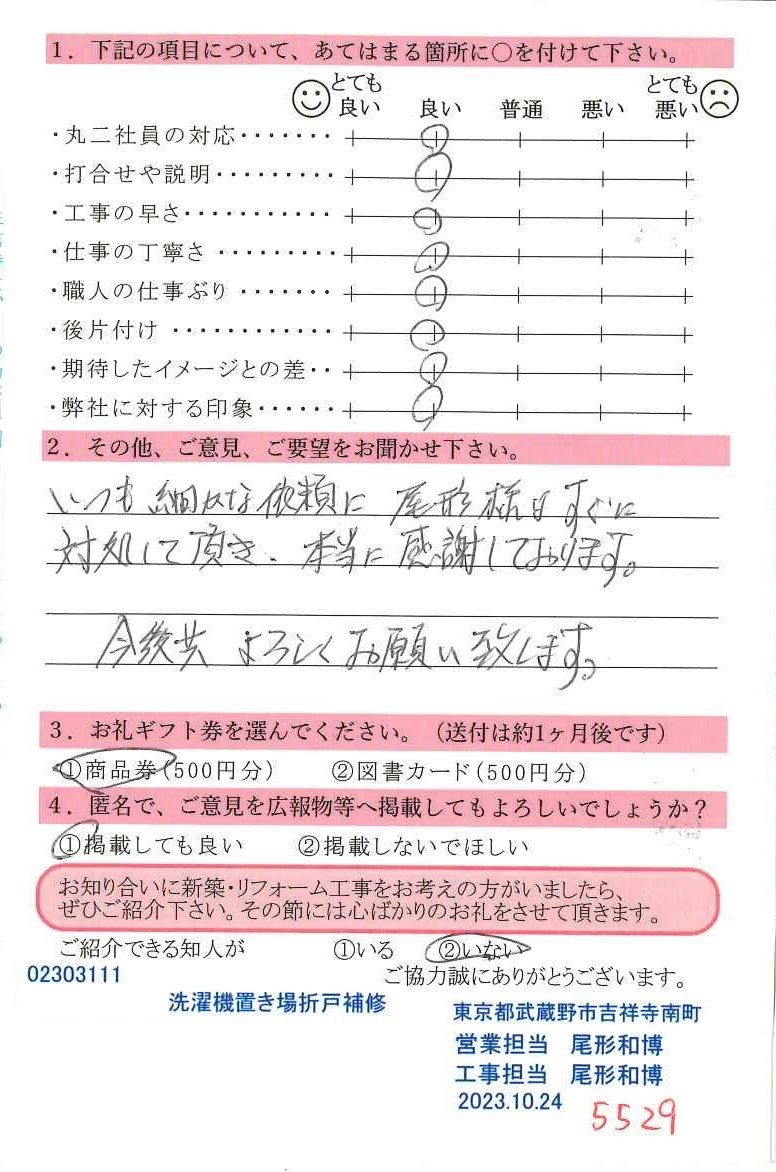 1．下記の項目について、あてはまる箇所に○を付けて下さい。
とても良い 良い 普通 悪い とても悪い
・丸二社員の対応・・・・・・・
・打合せや説明・・・・・・・・・
・工事の早さ・・・・・・・・・・・
・仕事の丁寧さ・・・・・・・・・
・職人の仕事ぶり・・・・・・・
・後片付け・・・・・・・・・・・・
・期待したイメージとの差・・
・弊社に対する印象・・・・・・
2．その他、ご意見、ご要望をお聞かせ下さい。
いつも細かな依頼に尾形様はすぐに
対処して頂き、本当に感謝しております。
今後共よろしくお願い致します。
3．お礼ギフト券を選んでください。（送付は約1ヶ月後です）
①商品券（500円分） ②図書カード（500円分）
4．匿名で、ご意見を広報物等へ掲載してもよろしいでしょうか？
①掲載しても良い ②掲載しないでほしい
お知り合いに新築・リフォーム工事をお考えの方がいましたら、
ぜひご紹介下さい。その節には心ばかりのお礼をさせて頂きます。
ご紹介できる知人が ①いる ②いない
02303111
ご協力誠にありがとうございます。
洗濯機置き場折戸補修
東京都武蔵野市吉祥寺南町
営業担当 尾形和博
工事担当 尾形和博
2023.10.24
5529